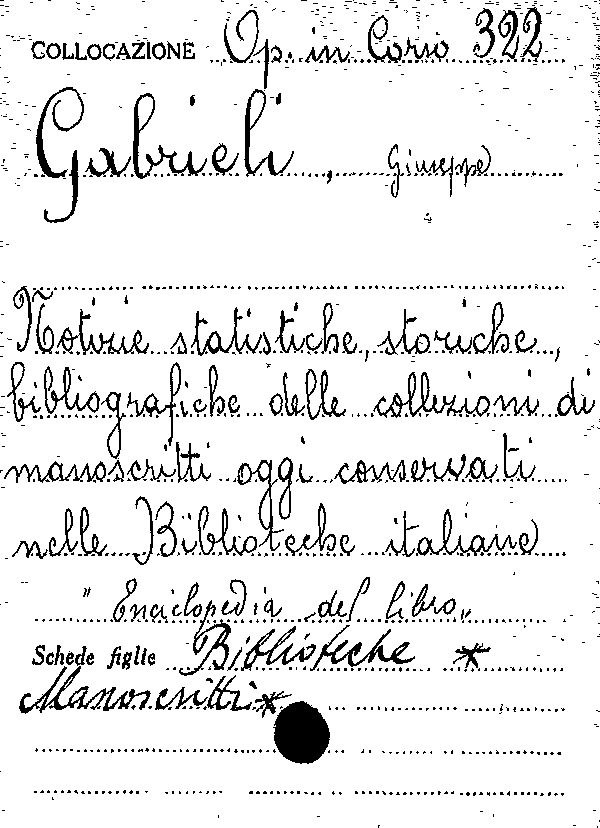 COLLOCAZIONE Op. in Corso 322
Gabrieli, Giuseppe
Notizie statistiche, storiche,
bibliografiche delle collezioni di
manoscritti oggi conservati
nelle Biblioteche italiane
"Enciclopedia del libro„
Schede figlie Biblioteche *
Manoscritti *